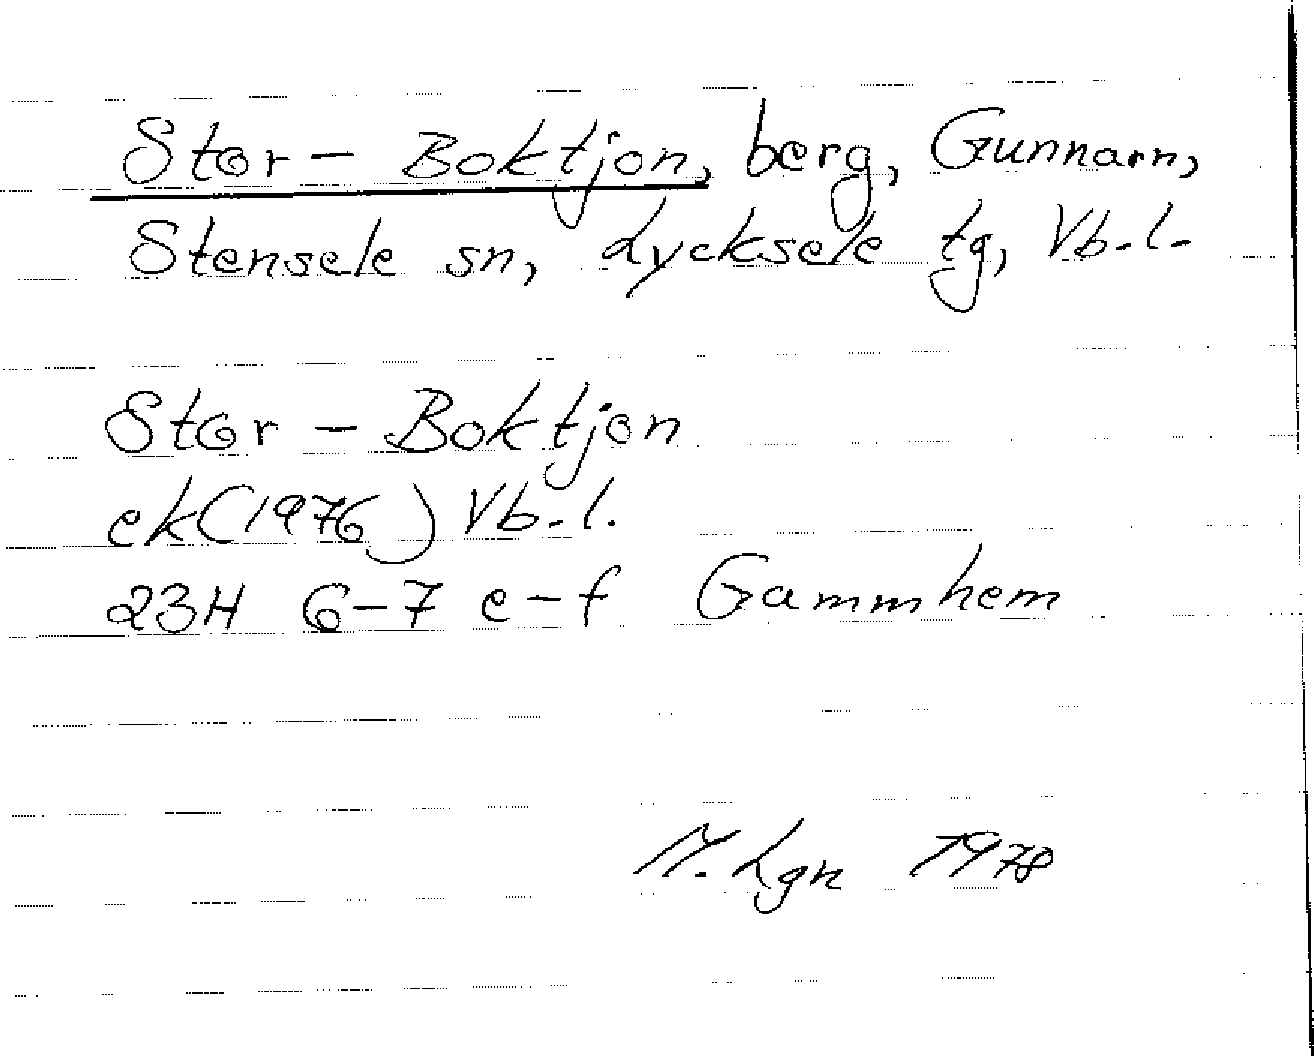 Stor - Boktjon, berg, Gunnarn,
Stensele sn, Lycksele tg, Vb.l.
Stor - Boktjon
ek (1976) Vb.l.
23H 6-7 e-f Gammhem
M. Lgn 1978